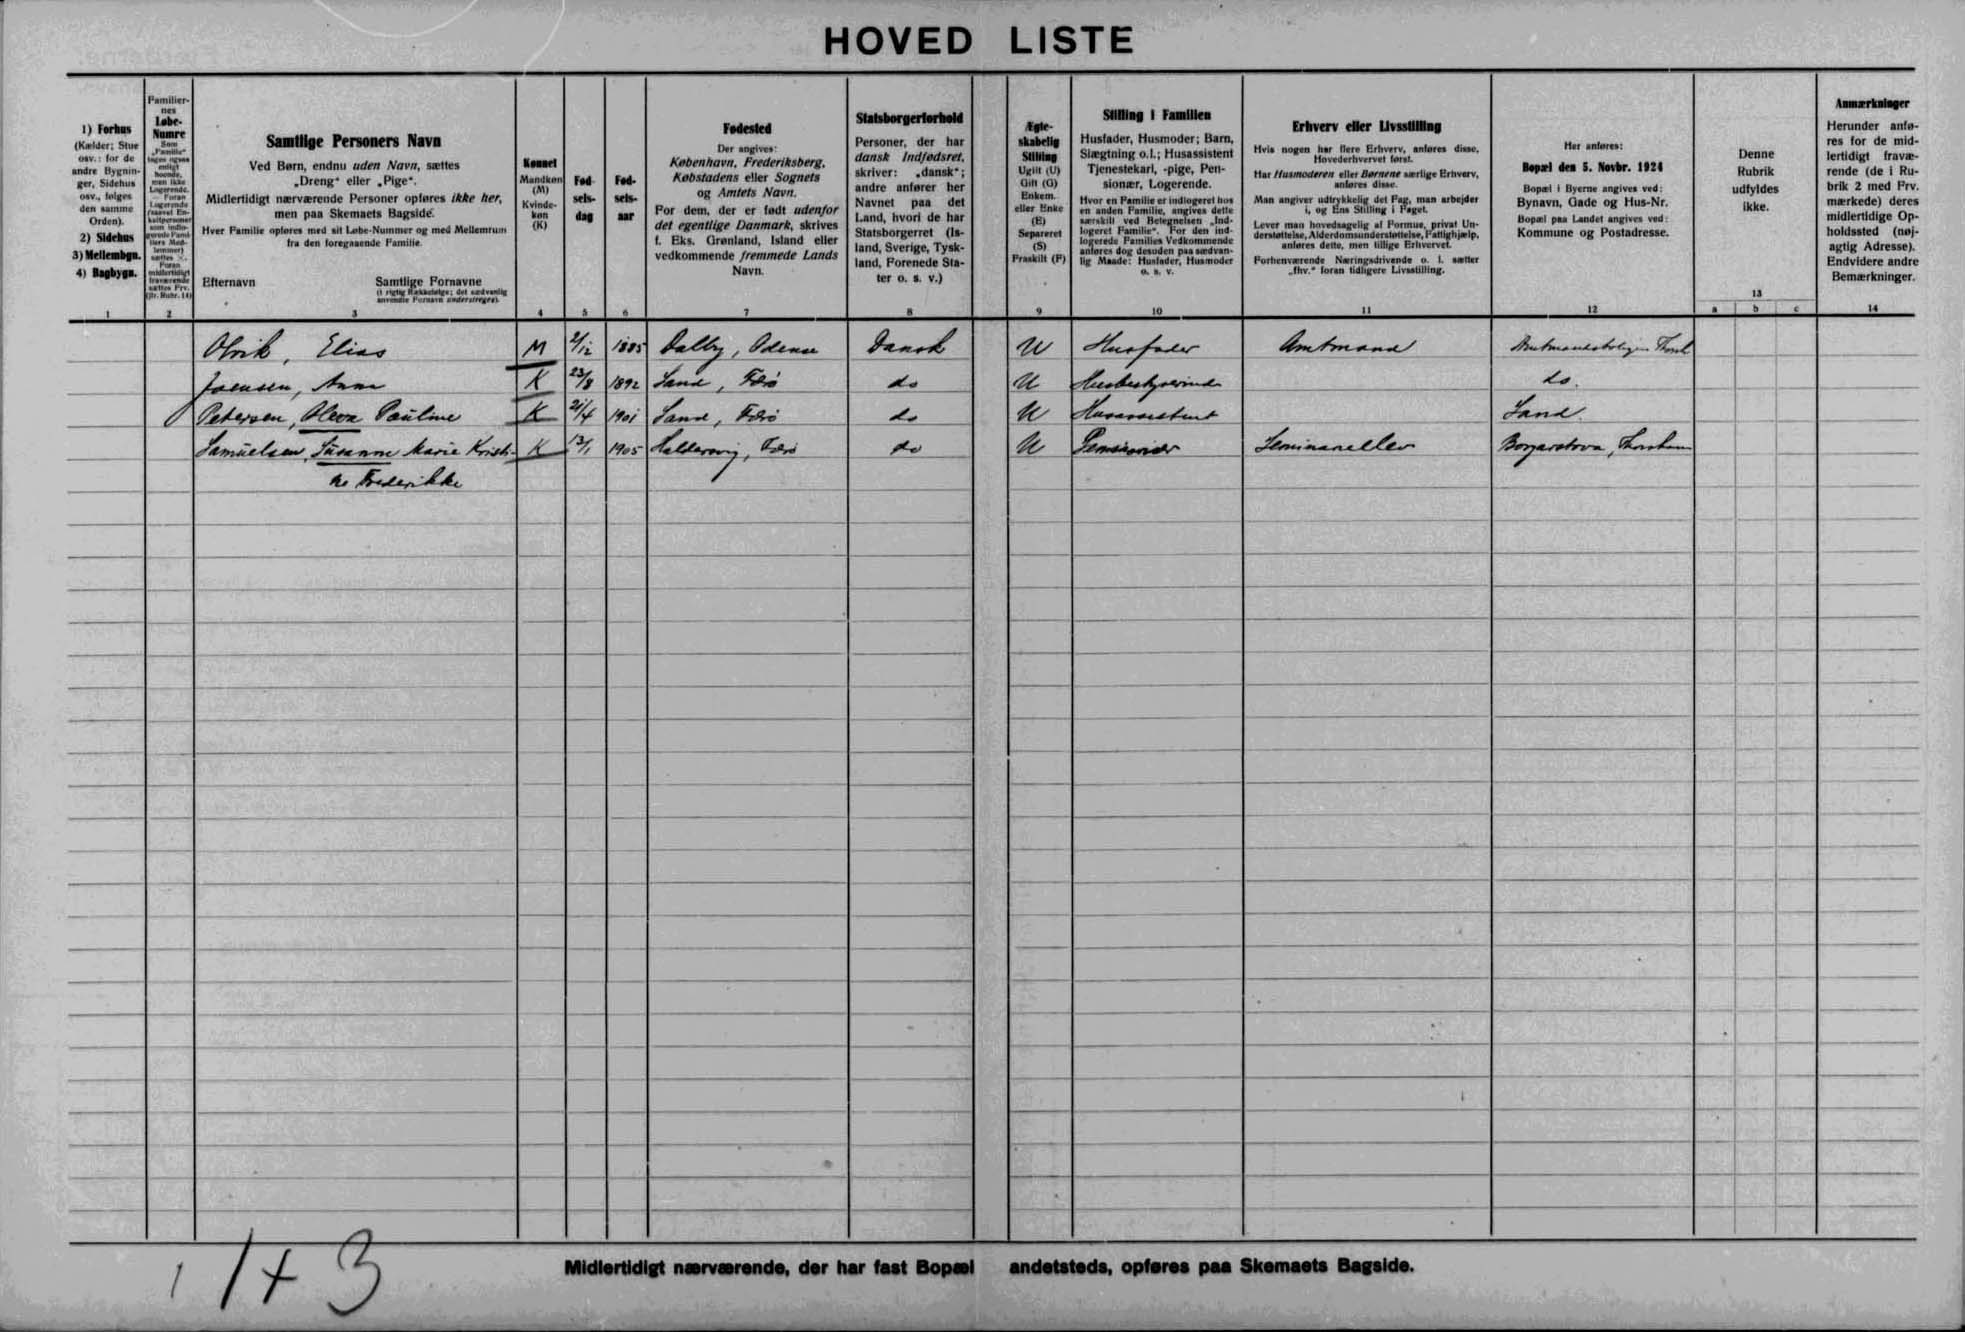 HOVED LISTE
1) Forhus
(Kælder; Stue
osv.: for de
andre Bygnin-
ger, Sidehus
osv., følges
den samme
Orden).
2) Sidehus
3) Mellembgn.
4) Bagbygn.
1
Familier-
nes
Løbe-
Numre
Som
„Familie"
tages ogsaa
enligt
boende,
men ikke
Logerende.
— Foran
Logerende
(saavel En-
keltpersoner
som indlo-
gerede Fami-
liers Med-
lemmer)
sættes ×.
Foran
midlertidigt
fraværende
sættes Frv.
(jfr. Rubr. 14)
2
Samtlige Personers Navn
Ved Børn, endnu uden Navn, sættes
„Dreng" eller „Pige".
Midlertidigt nærværende Personer opføres ikke her,
men paa Skemaets Bagside.
Hver Familie opføres med sit Løbe-Nummer og med Mellemrum
fra den foregaaende Familie.
Efternavn Samtlige Fornavne
(i rigtig Rækkefølge; det sædvanlig
anvendte Fornavn understreges).
3
Kønnet
Mandkøn
(M)
Kvinde-
køn
(K)
4
Fød-
sels-
dag
5
Fød-
sels-
aar
6
Fødested
Der angives:
København, Frederiksberg,
Købstadens eller Sognets
og Amtets Navn.
For dem, der er født udenfor
det egentlige Danmark, skrives
f. Eks. Grønland, Island eller
vedkommende fremmede Lands
Navn.
7
Statsborgerforhold
Personer, der har
dansk Indfødsret,
skriver: „dansk";
andre anfører her
Navnet paa det
Land, hvori de har
Statsborgerret (Is-
land, Sverige, Tysk-
land, Forenede Sta-
ter o. s. v.)
8
Ægte-
skabelig
Stilling
Ugift (U)
Gift (G)
Enkem.
eller Enke
(E)
Separeret
(S)
Fraskilt (F)
9
Stilling i Familien
Husfader, Husmoder; Barn,
Slægtning o.l.; Husassistent
Tjenestekarl, -pige, Pen-
sionær, Logerende.
Hvor en Familie er indlogeret hos
en anden Familie, angives dette
særskilt ved Betegnelsen „Ind-
logeret Familie". For den ind-
logerede Families Vedkommende
anføres dog desuden paa sædvan-
lig Maade: Husfader, Husmoder
o. s. v.
10
Erhverv eller Livsstilling
Hvis nogen har flere Erhverv, anføres disse,
Hovederhvervet først.
Har Husmoderen eller Børnene særlige Erhverv,
anføres disse.
Man angiver udtrykkelig det Fag, man arbejder
i, og Ens Stilling i Faget.
Lever man hovedsagelig af Formue, privat Un-
derstøttelse, Alderdomsunderstøttelse, Fattighjælp,
anføres dette, men tillige Erhvervet.
Forhenværende Næringsdrivende o. l. sætter
„fhv." foran tidligere Livsstilling.
11
Her anføres:
Bopæl den 5. Novbr. 1924
Bopæl i Byerne angives ved:
Bynavn, Gade og Hus-Nr.
Bopæl paa Landet angives ved:
Kommune og Postadresse.
12
Denne
Rubrik
udfyldes
ikke.
13
a b c
Anmærkninger
Herunder anfø-
res for de mid-
lertidigt fravæ-
rende (de i Ru-
brik 2 med Frv.
mærkede) deres
midlertidige Op-
holdssted (nøj-
agtig Adresse).
Endvidere andre
Bemærkninger.
14
Olrik, Elias M 2/12 1885 Dalby, Odense Dansk U Husfader Amtmand
Joensen, Anna K 23/8 1892 Sand, Færø do U Husbestyrerinde do.
Petersen, Oleva Pauline K 21/4 1901 Sand, Færø do U Husassistent Sand.
Samuelsen, Susanne Marie Kristi- K 13/1 1905 Haldersvig, Færø do U Pensionær Seminarielev Borgarstova, Thorshavn
ne Frederikke
1 1+3
Midlertidigt nærværende, der har fast Bopæl andetsteds, opføres paa Skemaets Bagside.